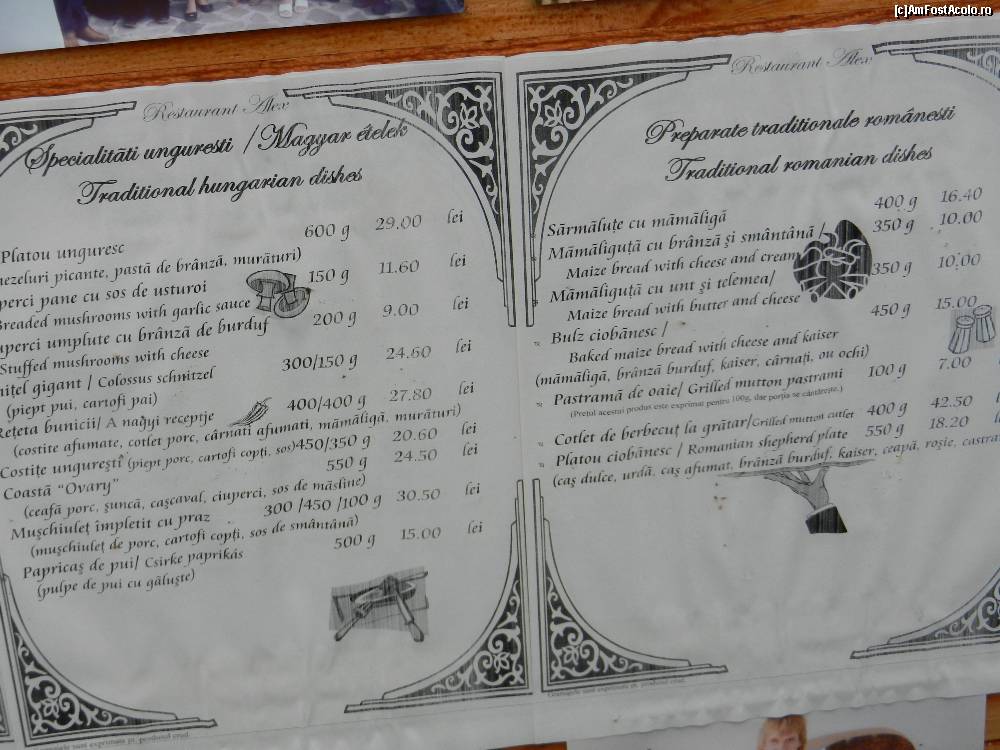 [c]AmFostAcolo.ro
Restaurant Alex
Specialităti unguresti / Magyar ételek
Traditional hungarian dishes
Platou unguresc 600 g 29.00 lei
mezeluri picante, pastă de brânză, murături)
perci pane cu sos de usturoi 150 g 11.60 lei
Breaded mushrooms with garlic sauce
uperci umplute cu brânză de burduf 200 g 9.00 lei
Stuffed mushrooms with cheese
nițel gigant / Colossus schnitzel 300/150 g 24.60 lei
(piept pui, cartofi pai)
Rețeta bunicii/ A nagyi receptje 400/400 g 27.80 lei
(costite afumate, cotlet porc, cârnati afumati, mămăligă, murături)
Costițe ungurești (piept porc, cartofi copți, sos) 450/350 g 20.60 lei
Coastă "Ovary" 550 g 24.50 lei
(ceafă porc, șuncă, cașcaval, ciuperci, sos de măsline)
Mușchiuleț împletit cu praz 300 /450 /100 g 30.50 lei
(mușchiuleț de porc, cartofi copți, sos de smântână)
Papricaș de pui/ Csirke paprikás 500 g 15.00 lei
(pulpe de pui cu găluște)
Restaurant Alex
Preparate traditionale românesti
Traditional romanian dishes
Sărmăluțe cu mămăligă 400 g 16.40
Mămăliguță cu brânză și smântână / 350 g 10.00
Maize bread with cheese and cream
Mămăliguță cu unt și telemea/ 350 g 10.00
Maize bread with butter and cheese
Bulz ciobănesc / 450 g 15.00
Baked maize bread with cheese and kaiser
(mămăligă, brânză burduf, kaiser, cârnați, ou ochi)
Pastramă de oaie/ Grilled mutton pastrami 100 g 7.00
(Prețul acestui produs este exprimat pentru 100g, dar porția se cântărește.)
Cotlet de berbecuț la grătar/Grilled mutton cutlet 400 g 42.50
Platou ciobănesc / Romanian shepherd plate 550 g 18.20
(caș dulce, urdă, caș afumat, brânză burduf, kaiser, ceapă, roșie, castra
sunt exprimate pt. produsul crud.
Gramajele sunt exprimate pt. produsul crud.